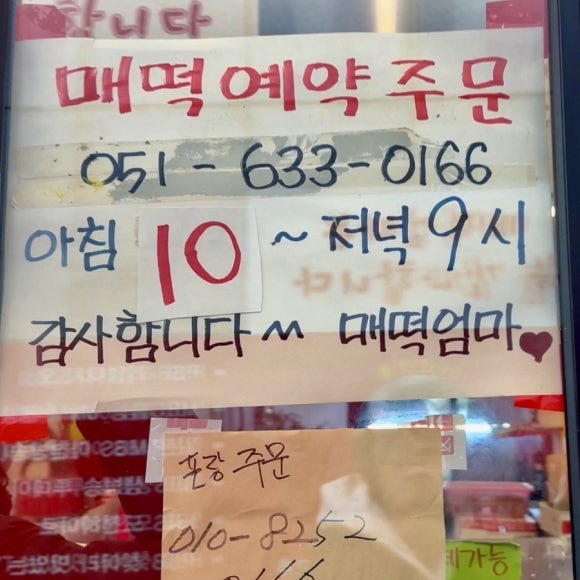 합니다
매떡예약주문
051-633-0166
아침 10 ~ 저녁 9시
감사합니다~ 매떡엄마♥
포장 주문
010-8252
0166
제가능